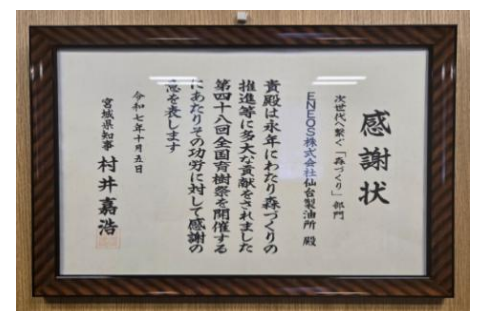 感謝状
次世代へ繋ぐ「森づくり」部門
ENEOS株式会社仙台製油所 殿
貴殿は永年にわたり森づくりの
推進等に多大な貢献をされました
第四十八回全国育樹祭を開催する
にあたりその功労に対して感謝の
意を表します
令和七年十月五日
宮城県知事 村井嘉浩